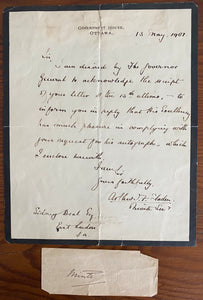 GOVERNMENT HOUSE,
OTTAWA.
13 May, 1901
Sir,
I am desired by The Governor
General to acknowledge the receipt
of your letter of the 12th ultimo, - to
inform you in reply that His Excellency
has much pleasure in complying with
your request for his autograph - which
I enclose herewith
I am Sir
Yours faithfully,
Arthur F. Sladen
Private Sec
Esq
East London
S.A.
Minto